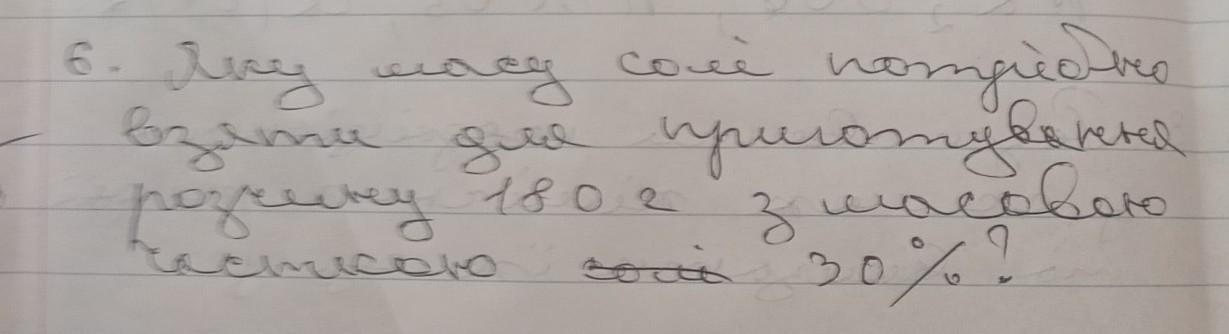 6. Яку масу солі потрібно
взяти для приготування
розчину 180 г з масовою
часткою солі 30%?